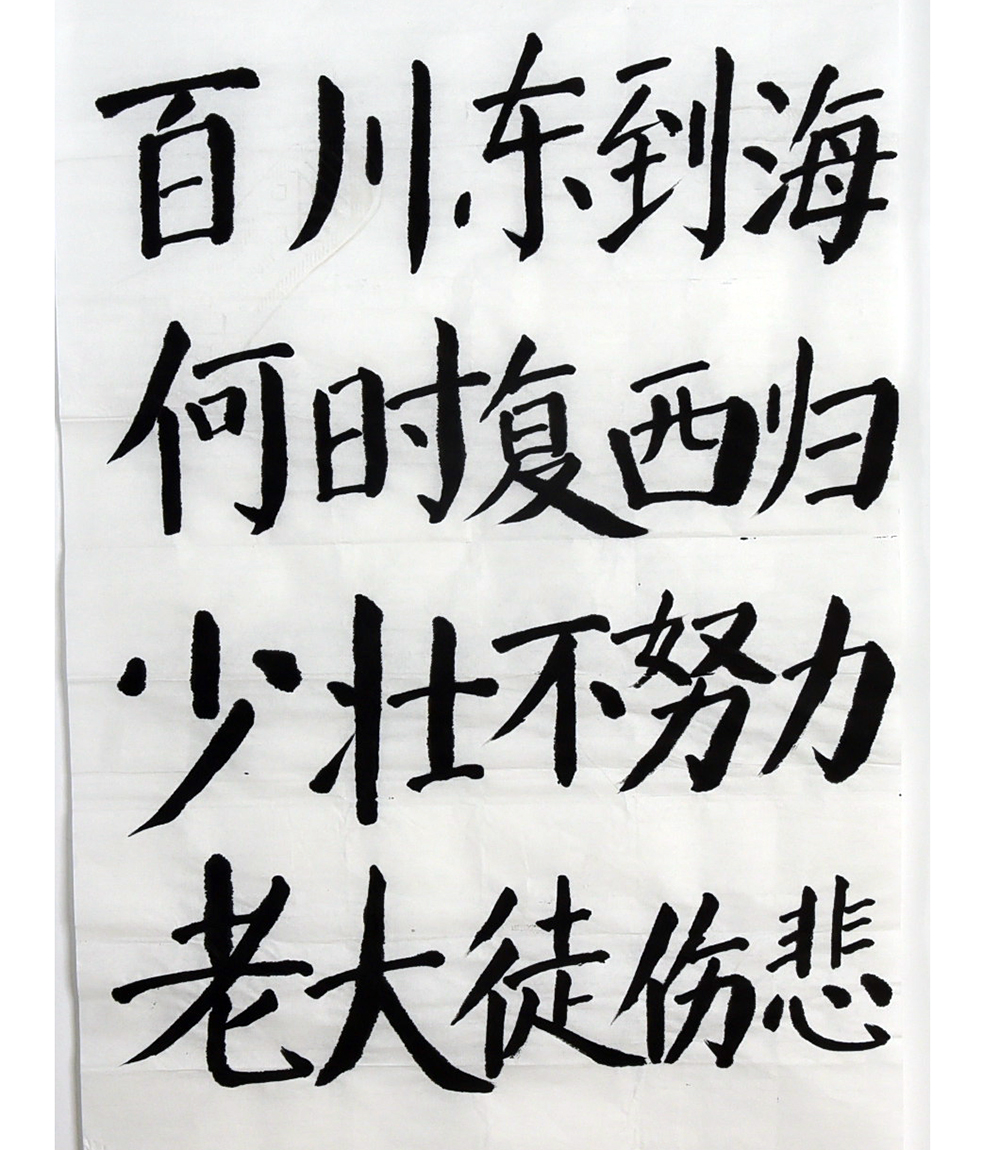 百川东到海
何时复西归
少壮不努力
老大徒伤悲